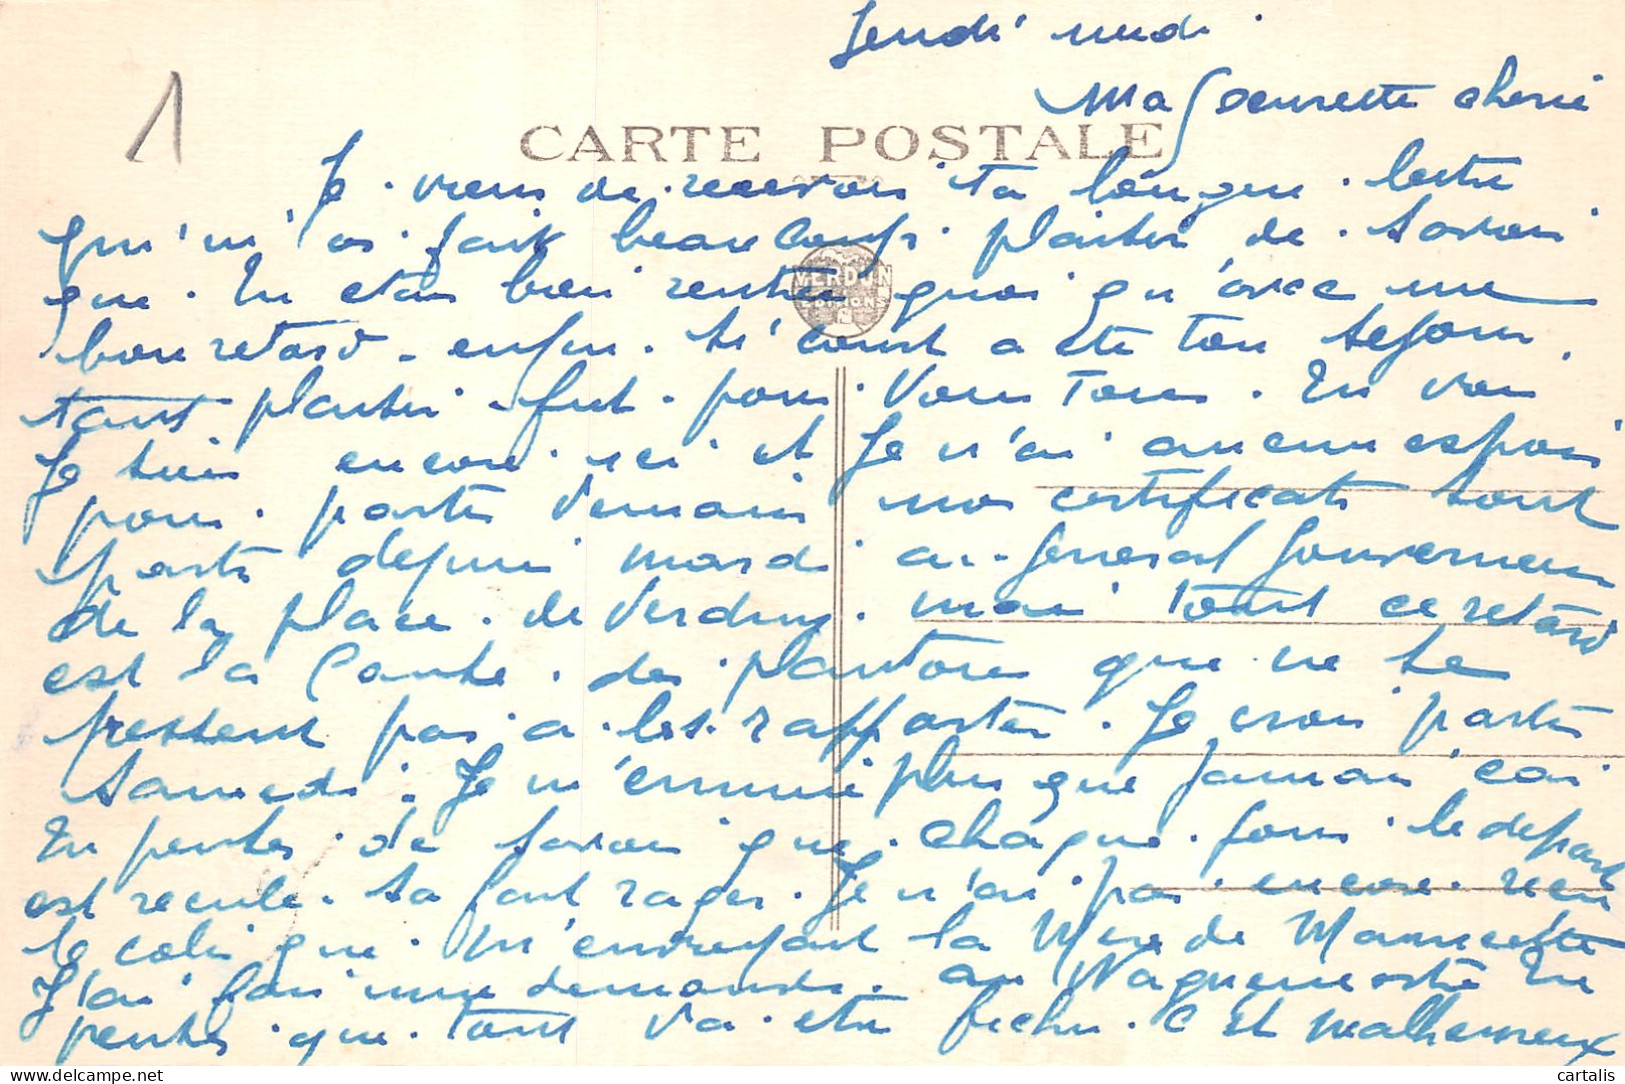 1
Jeudi midi
Ma Soeurette cherie
CARTE POSTALE
Je viens de recevoir ta longue lettre
qui m'as fait beaucoup plaisir de savoir
VERDUN
EDITIONS
que tu etais bien rentré quoi qu'avec une
bon retard enfin si court a ete ton sejour
tant plaisir fut pour vous tous. Tu vois
Je suis encore ici et Je n'ai aucun espoir
pour partir demain nos certificats sont
parti depuis mardi au General Gouverneur
de la place de Verdun. mai tout ce retard
est la faute des plantons que ne se
pressent pas a les rapporter. Je crois partir
Samedi. Je m'ennuie plus que Jamai car
Tu penses de savoir que chaque jour le depart
est recule sa fait rager. Je n'ai pas encore recu
le colis que tu m'envoyant la Mere de Mauricette
J'ai fais une demande au tu
penses que tout va etre fichu. C est malheureux
cartalis